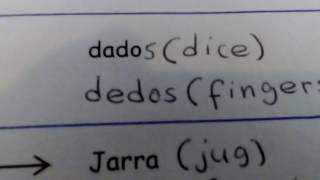 dados (dice)
dedos (fingers
Jarra (jug)